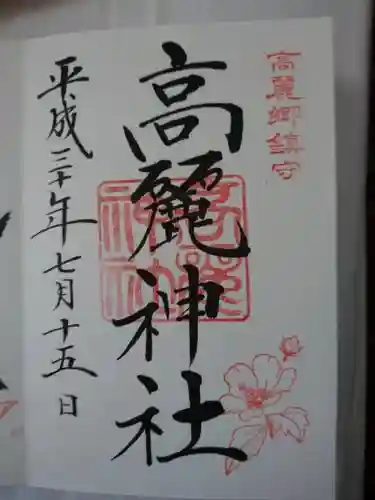 高麗郷鎮守
高麗神社
平成三十年七月十五日